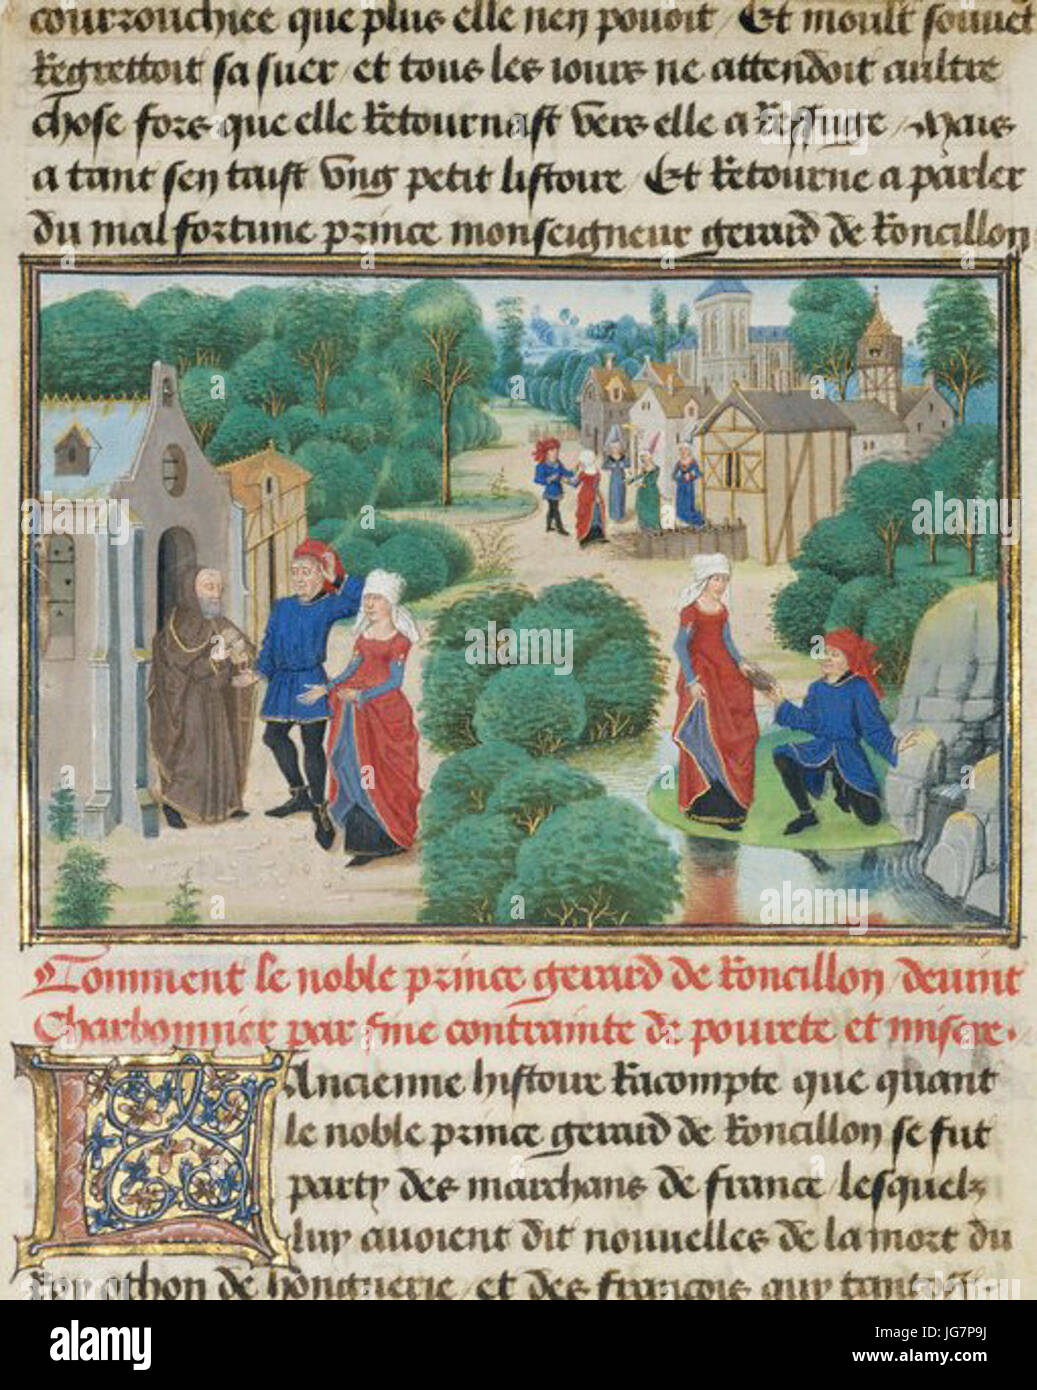 courrouchiee que plus elle nen pouoit / Et moult souuet
Regrettoit sa suer / et tous les iours ne attendoit aultre
chose fors que elle Retournast vers elle a Reffuge / Mais
a tant sen taist vng petit listoire / Et Retourne a parler
du mal fortune prince monseigneur gerard de Roncillon
Comment le noble prince gerard de Roncillon / deuint
Charbonnier par fine contrainte de pourete et misere.
LAncienne histoire Racompte que quant
le noble prince gerard de Roncillon se fut
party des marchans de france / lesquelz
luy auoient dit nouuelles de la mort du
Roy othon de honguerie / et des francois quy tant
a alamy stock photo
JG7P9J
www.alamy.com